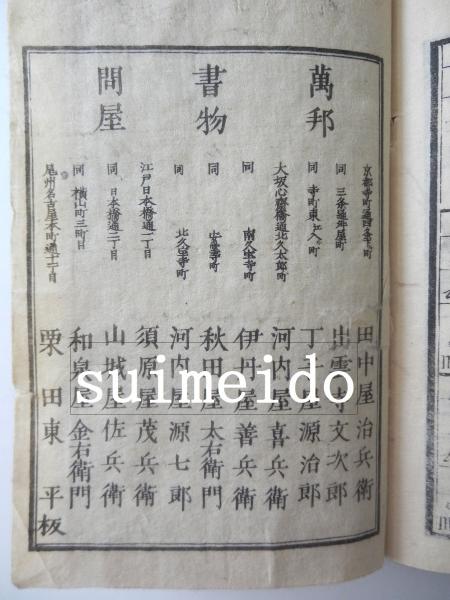 萬邦
書物
問屋
京都寺町通四条下ル町 田中屋治兵衛
同 三条通舛屋町 出雲寺文次郎
同 寺町東江入ル町 丁子屋源治郎
大坂心齋橋通北久太郎町 河内屋喜兵衛
同 南久宝寺町 伊丹屋善兵衛
同 安堂寺町 秋田屋太右衛門
同 北久宝寺町 河内屋源七郎
江戸日本橋通一丁目 須原屋茂兵衛
同 日本橋通二丁目 山城屋佐兵衛
同 横山町三町目 和泉屋金右衛門
尾州名古屋本町通十一丁目 栗田東平板
suimeido